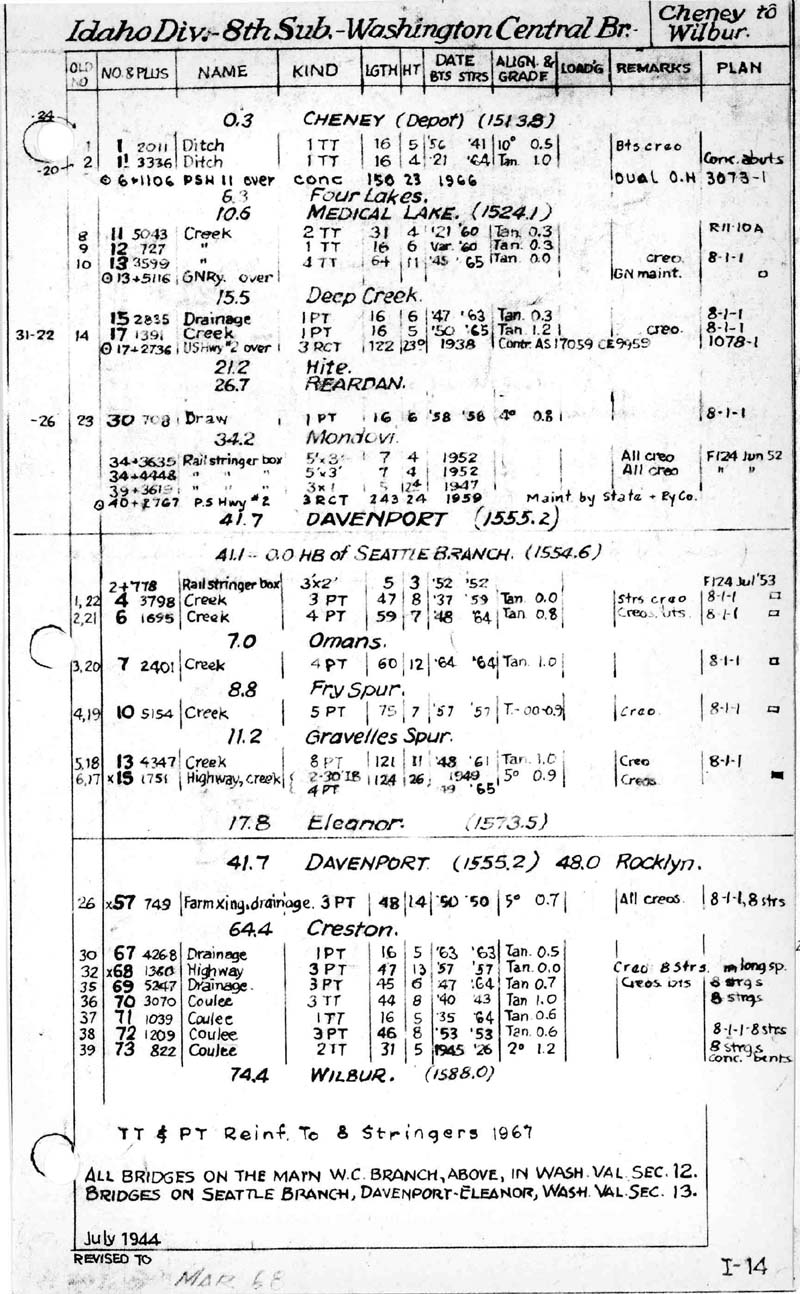 Idaho Div.- 8th Sub.- Washington Central Br.- Cheney to Wilbur.
OLD NO NO. & PLUS NAME KIND LGTH HT DATE BTS STRS ALIGN. & GRADE LOAD'G REMARKS PLAN
-24
0.3 CHENEY (Depot) (1513.8)
1 1 2011 Ditch 1 TT 16 5 '56 '41 10° 0.5 Bts creo
-20- 2 1! 3336 Ditch 1 TT 16 4 '21 '64 Tan. 1.0 Conc. abuts
⊙ 6+1106 PSH 11 over conc 150 23 1966 DUAL O.H 3073-1
6.3 Four Lakes.
10.6 MEDICAL LAKE. (1524.1)
8 11 5043 Creek 2 TT 31 4 '21 '60 Tan. 0.3 R11-10A
9 12 727 " 1 TT 16 6 Var. '60 Tan. 0.3
10 13 3599 " 4 TT 64 11 '45 '65 Tan. 0.0 creo. 8-1-1
⊙ 13+5116 GNRy. over GN maint.
15.5 Deep Creek.
15 2835 Drainage 1 PT 16 6 '47 '63 Tan. 0.3 8-1-1
31-22 14 17 1391 Creek 1 PT 16 5 '50 '65 Tan. 1.2 creo. 8-1-1
⊙ 17+2736 US Hwy #2 over 3 RCT 122 23° 1938 Contr. AS 17059 CE9959 1078-1
21.2 Hite.
26.7 REARDAN.
-26 23 30 708 Draw 1 PT 16 6 '58 '58 4° 0.8 8-1-1
34.2 Mondovi.
34+3635 Rail stringer box 5'x3' 7 4 1952 All creo F124 Jun 52
34+4448 " " " 5'x3' 7 4 1952 All creo " "
39+3619 " " " 3x1 5 1947
⊙ 40+2767 P.S Hwy #2 3 RCT 243 24 1959 Maint by State + Ry Co.
41.7 DAVENPORT (1555.2)
41.1 - 0.0 HB of SEATTLE BRANCH. (1554.6)
2+778 Rail stringer box 3'x2' 5 3 '52 '52 F124 Jul '53
1,22 4 3798 Creek 3 PT 47 8 '37 '59 Tan 0.0 Strs creo 8-1-1
2,21 6 1695 Creek 4 PT 59 7 '48 '64 Tan. 0.8 Creos. bts. 8-1-1
7.0 Omans.
3,20 7 2401 Creek 4 PT 60 12 '64 '64 Tan. 1.0 8-1-1
8.8 Fry Spur.
4,19 10 5154 Creek 5 PT 75 7 '57 '57 T.-00-0.9 Creo. 8-1-1
11.2 Gravelles Spur.
5,18 13 4347 Creek 8 PT 121 11 '48 '61 Tan. 1.0 Creo 8-1-1
6,17 x15 1751 Highway, creek { 2-30' IB 124 26 1949 5° 0.9 Creos
4 PT '65
17.8 Eleanor. (1573.5)
41.7 DAVENPORT (1555.2) 48.0 Rocklyn.
26 x57 749 Farm xing, drainage. 3 PT 48 14 '50 '50 5° 0.7 All creos. 8-1-1, 8 strs
64.4 Creston.
30 67 4268 Drainage 1 PT 16 5 '63 '63 Tan. 0.5
32 x68 1360 Highway 3 PT 47 13 '57 '57 Tan. 0.0 Creo 8 Strs. long sp.
35 69 5247 Drainage. 3 PT 45 6 '47 '64 Tan 0.7 Creos bts 8 strgs
36 70 3070 Coulee 3 TT 44 8 '40 '43 Tan 1.0 8 strgs
37 71 1039 Coulee 1 TT 16 5 '35 '64 Tan. 0.6
38 72 1209 Coulee 3 PT 46 8 '53 '53 Tan. 0.6 8-1-1-8 strs
39 73 822 Coulee 2 TT 31 5 1945 '26 2° 1.2 8 strgs conc. bents
74.4 WILBUR. (1588.0)
TT & PT Reinf. To 8 Stringers 1967
ALL BRIDGES ON THE MAIN W.C. BRANCH, ABOVE, IN WASH. VAL. SEC. 12.
BRIDGES ON SEATTLE BRANCH, DAVENPORT-ELEANOR, WASH. VAL. SEC. 13.
July 1944
REVISED TO
MAR 68
I-14